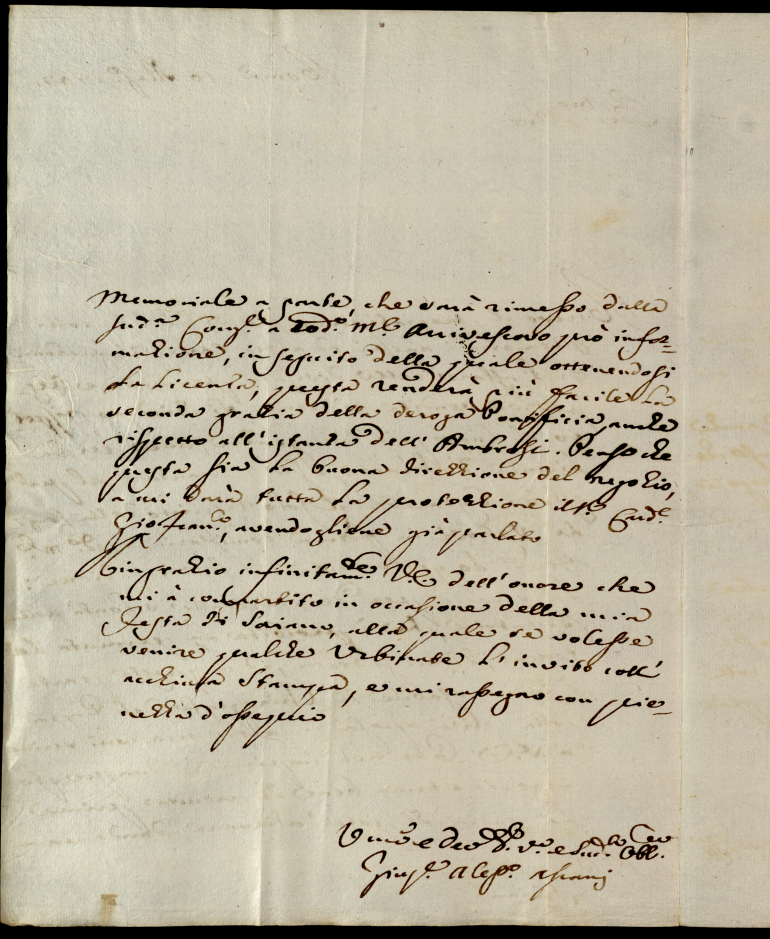 Memoriale a parte, che varà rimesso dalla
sud.ª Cong.e a cod.º M.r Arcivescovo p̃ infor=
mazione, in seguito della quale ottenendosi
la licenza, questa renderà più facile la
seconda grazia della deroga Pontificia anche
rispetto all'istanza dell' Ambrosi. Penso che
questa sia la buona direzzione del negozio,
a mi darà tutta la protezzione il S.r Card.e
Gio: Fran.co, avendogliene già parlato
Ringrazio infinitam.te V.E. dell'onore che
mi à compartito in occasione della mia
Festa di Saiano, alla quale se volesse
venire qualche Urbinate l'invito coll'
acchiusa Stampa, e mi rassegno con pie=
nezza d'ossequio
Um̃o e Dev.mo S.re V.ro e Sud.to Obl.
Giuse.e Aless.o